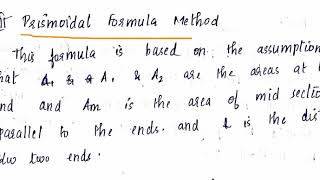 Prismoidal Formula Method
This formula is based on the assumption
that A₁ & A₂ are the areas at
and Am is the area of mid section
parallel to the ends. and L is the
two ends.